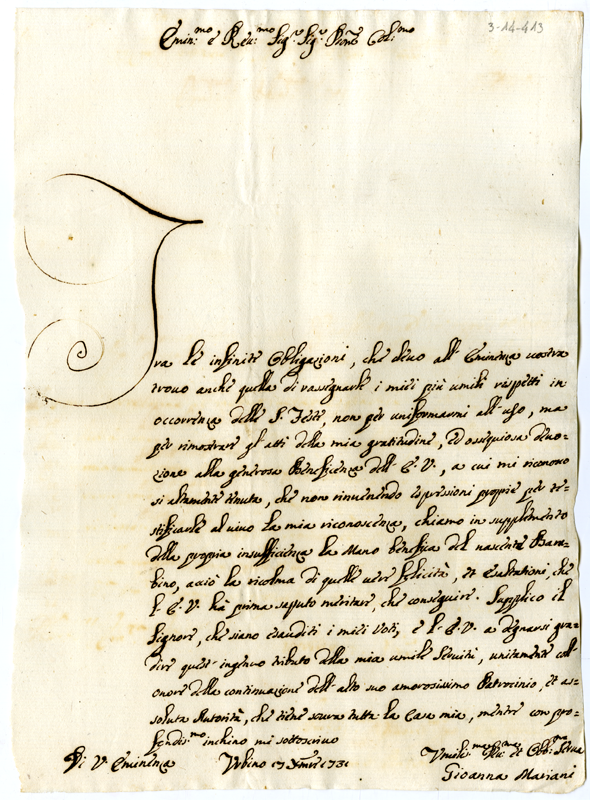 3-14-413
Emin:mo e Reu:mo Sig:r Sig:r Pron͠e Col:mo
Tra le infinite Obligazioni, che deuo all' Eminenza uostra
trouo anche quella di rassegnarle i miei più umili rispetti in
occorrenza delle S. Feste, non per uniformarmi all' uso, ma
per rimostrare gl' atti della mia gratitudine, ed ossequiosa deuo=
zione alla generosa Beneficenza dell' E. V., a cui mi riconosco
si altamente tenuta, che non rinuenendo espressioni proprie per te=
stificarle al uiuo la mia riconoscenza, chiamo in supplemento
della propria insufficienza la Mano benefica del nascente Bam=
bino, acciò la ricolma di quelle uere felicità, et esaltationi, che
l' E. V. hà prima saputo meritare, che conseguire. Supplico il
Signore, che siano esauditi i miei Voti, e l' E. V. a degnarsi gra=
dire quest' ingenuo tributo della mia umile seruitù, unitamente coll'
onore della continuazione dell' alto suo amorosissimo Patrocinio, et as=
soluta Autorità, che tiene soura tutta la Casa mia, mentre con pro=
fondis:mo inchino mi sottoscriuo
Di V. Eminenza Vrbino 17 Xmbre 1731
Vmilis:ma Deu:ma et Obb:ma Serua
Gioanna Mariani